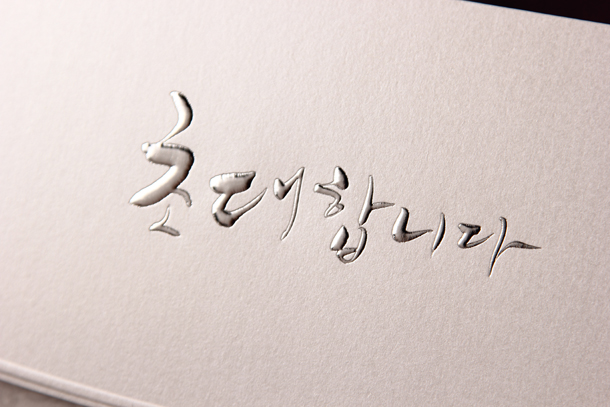 초대합니다